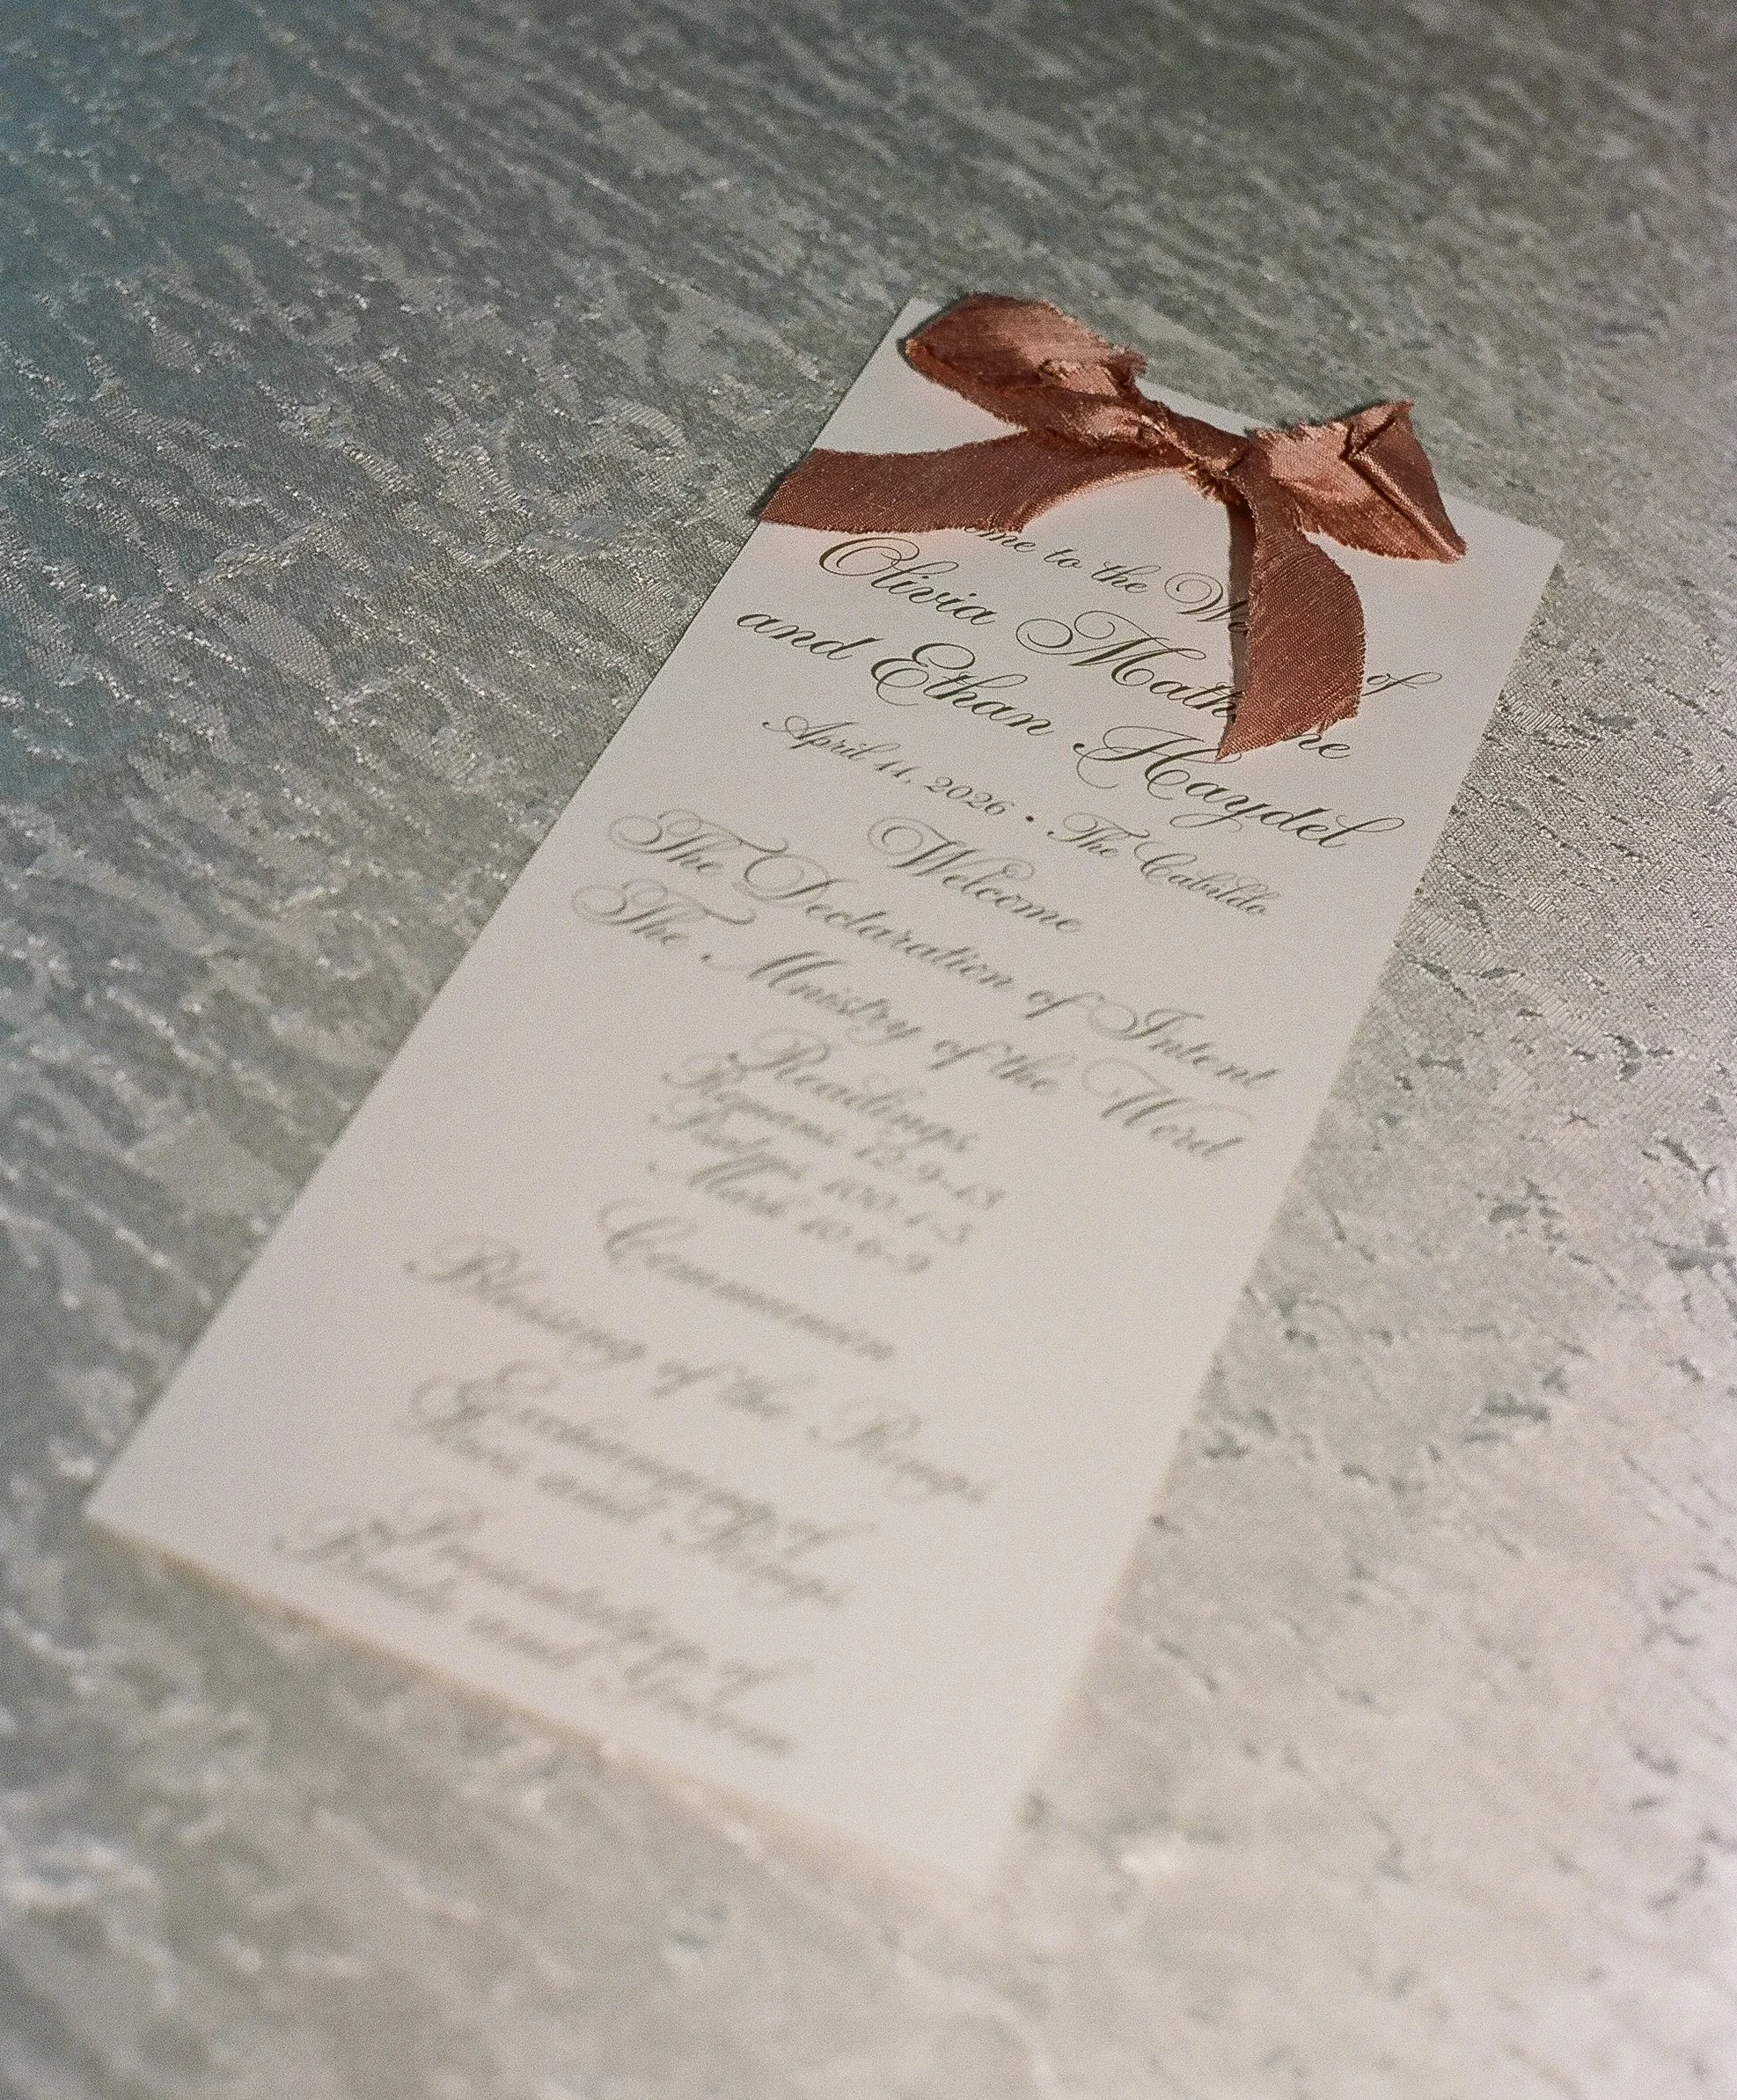 to the
of
Olivia
and Ethan Haydel
April 11, 2026 • The Cabildo
Welcome
The Declaration of Intent
The Ministry of the Word
Readings
Romans 12 9-13
100 1-5
Mark 10 6-9
Communion
Blessing of the Rings
Exchanging of
and Rings
Presentation of
Bride and Groom